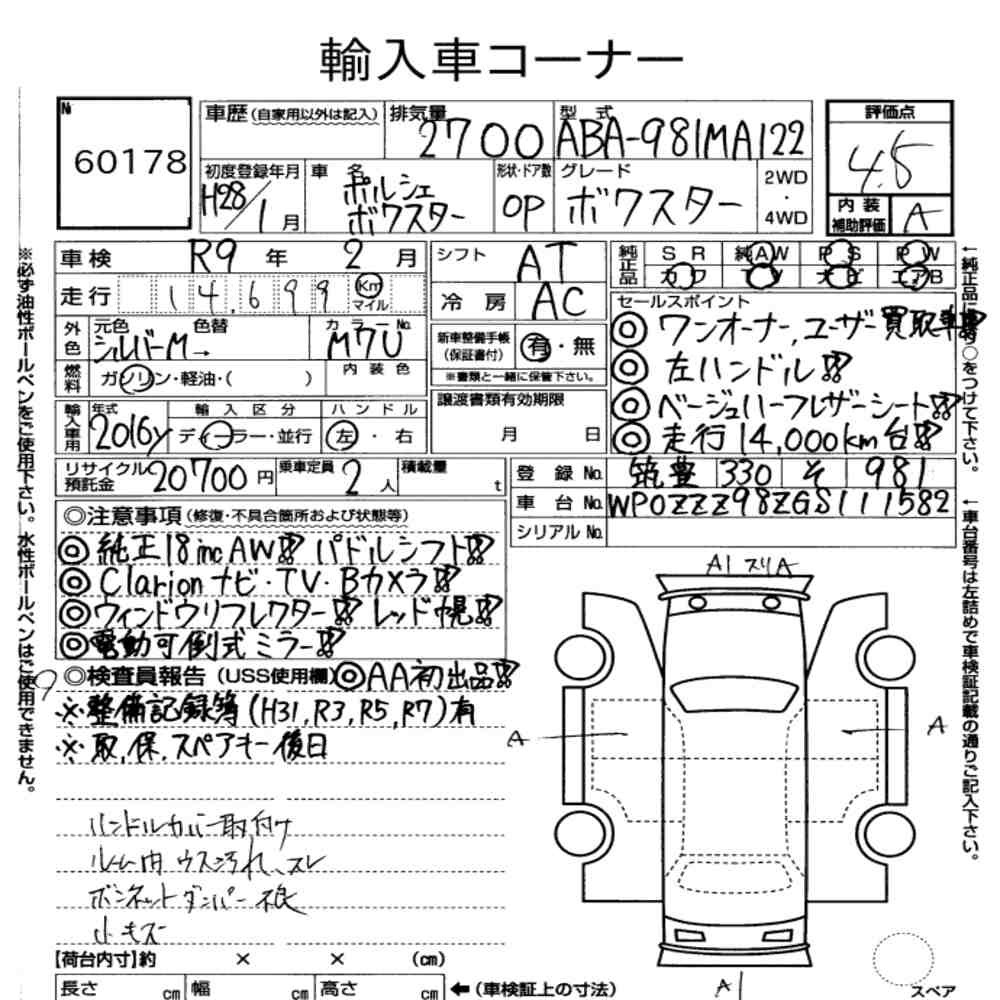 輸入車コーナー
№ 60178
車歴(自家用以外は記入)
排気量 2700
型式 ABA-981MA122
評価点 4.5
初度登録年月 H28/1月
車名 ポルシェ ボクスター
形状・ドア数 OP
グレード ボクスター
2WD・4WD
内装補助評価 A
車検 R9年 2月
シフト AT
純正品 SR 純AW PS PW
カワ エアB
走行 14,699 Km マイル
冷房 AC
セールスポイント
◎ワンオーナー,ユーザー買取車!!
外色 元色 色替 シルバーM→
カラーNo. M7U
内装色
新車整備手帳(保証書付) 有・無
※書類と一緒に保管下さい。
◎左ハンドル!!
燃料 ガソリン・軽油・( )
◎ベージュハーフレザーシート!!
輸入車用 年式 2016y
輸入区分 ディーラー・並行
ハンドル 左・右
譲渡書類有効期限 月 日
◎走行14,000km台!!
リサイクル預託金 20700円
乗車定員 2人
積載量 t
登録No. 筑豊 330 そ 981
車台No. WP0ZZZ98ZGS111582
シリアルNo.
◎注意事項(修復・不具合箇所および状態等)
◎純正18incAW!! パドルシフト!!
◎Clarionナビ・TV・Bカメラ!!
◎ウィンドウリフレクター!! レッド幌!!
◎電動可倒式ミラー!!
◎検査員報告(USS使用欄)◎AA初出品!!
※整備記録簿(H31,R3,R5,R7)有
※取,保,スペアキー後日
ハンドルカバー取付け
ルーム内 ウス汚れ、スレ
ボンネットダンパー不良
小キズ
A1 スリA
A
A
A1
スペア
【荷台内寸】約 × × (cm)
長さ cm 幅 cm 高さ cm ←(車検証上の寸法)
※必ず油性ボールペンをご使用下さい。水性ボールペンはご使用できません。
←純正品に○をつけて下さい。
←車台番号は左詰めで車検証記載の通りご記入下さい。